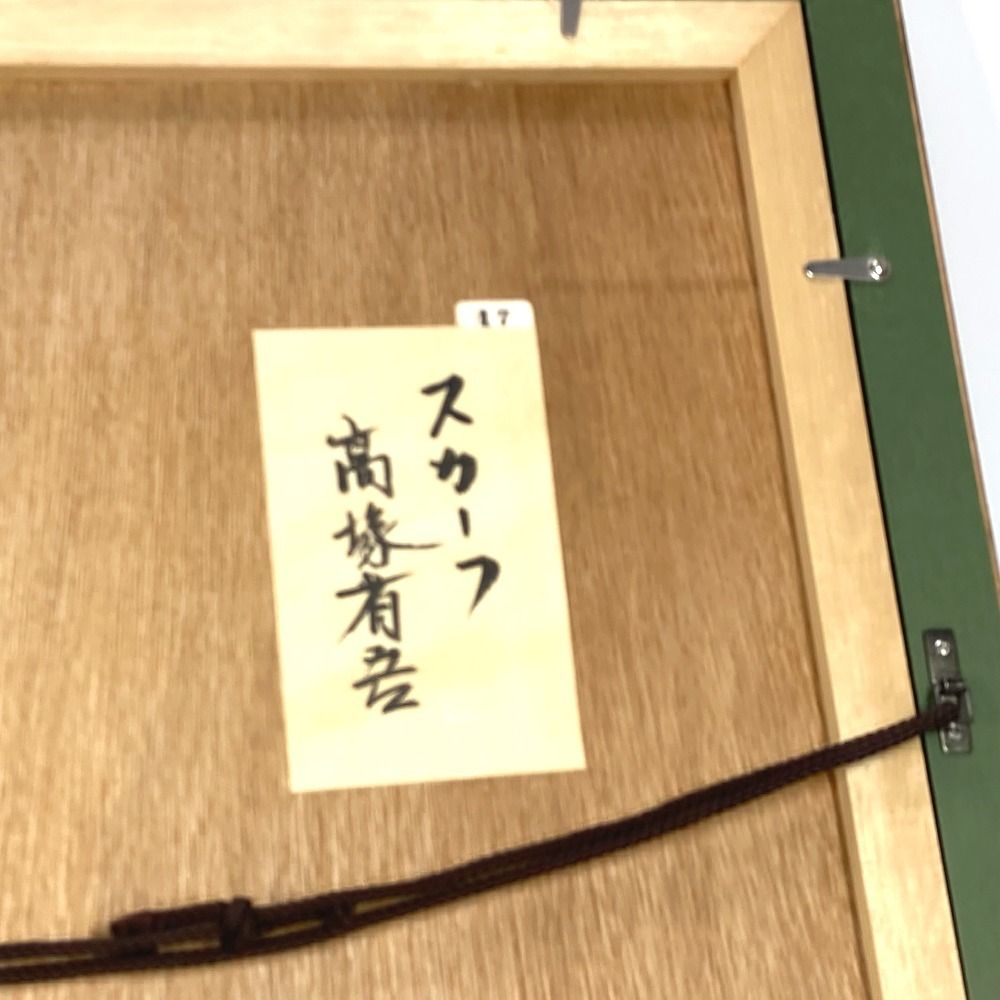 17
スカーフ
高塚有吾